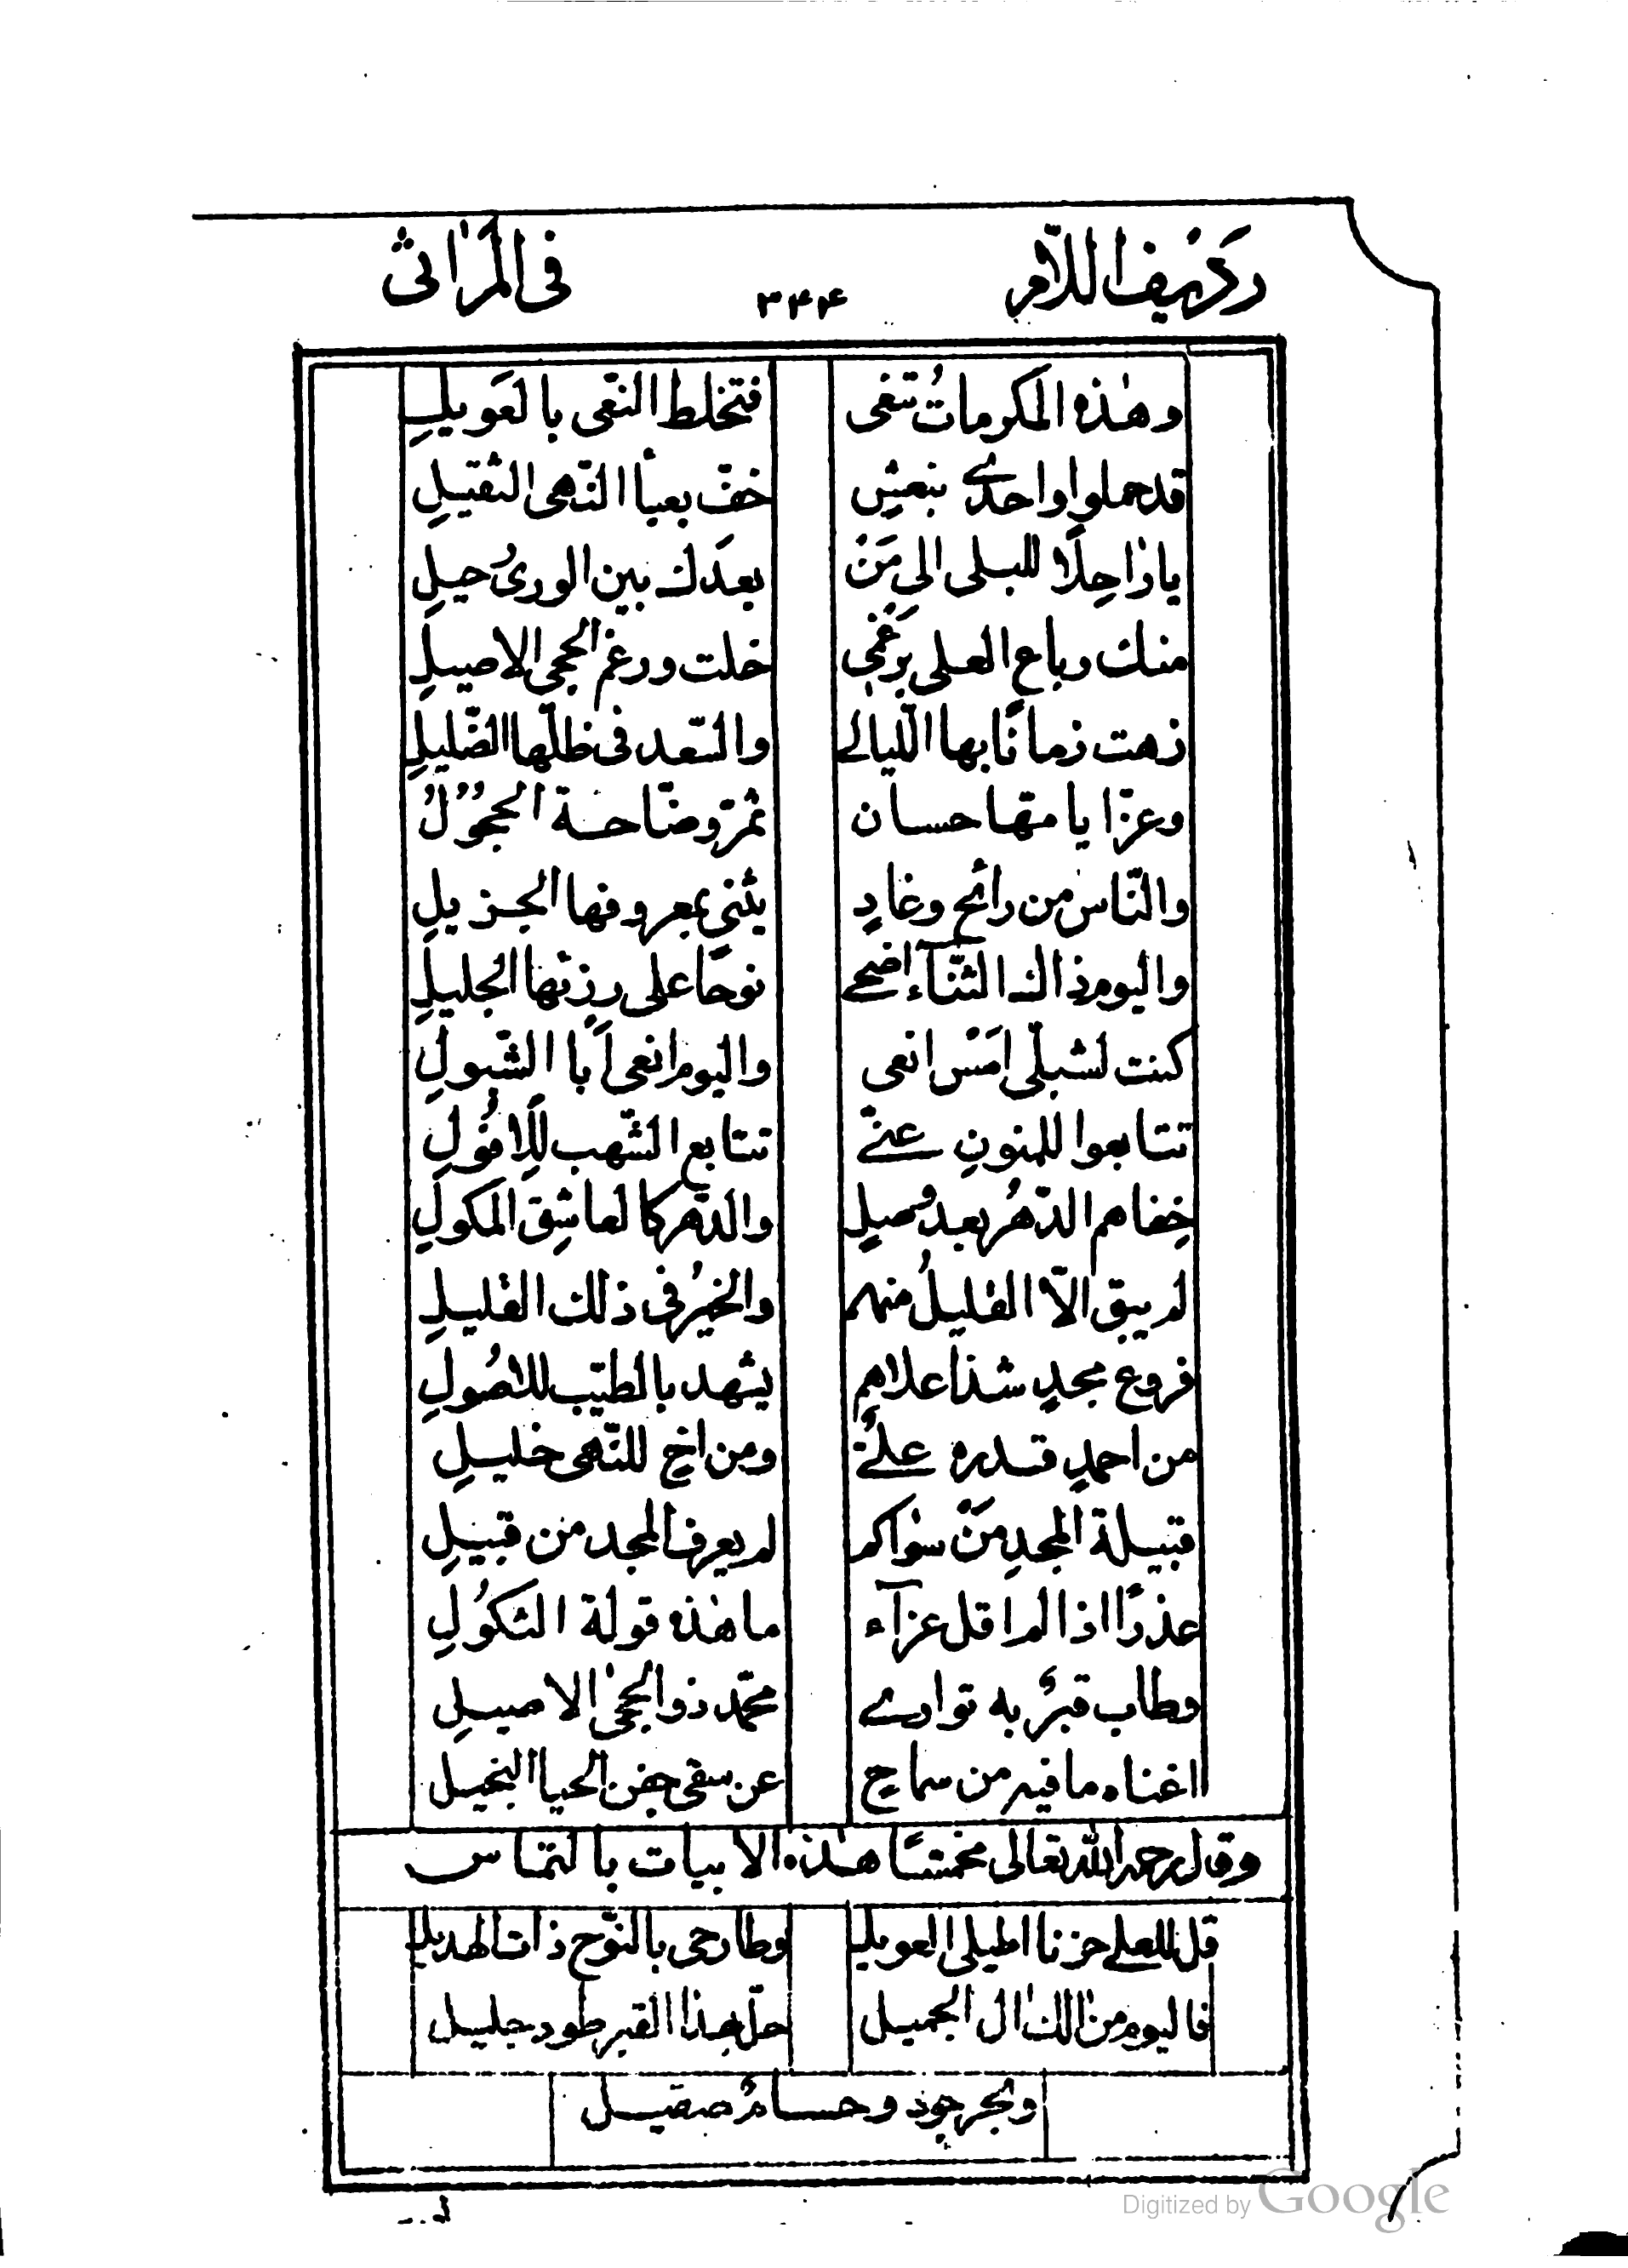 رديف اللام ٣٤٤ فى المراثى
وهٰذه المكرماتُ تنعى فتخلط النعى بالعَويلِ
قد حملوا واحدى بنعشٍ خفّ بعبأ النّهى الثقيلِ
يا راحِلًا للبلى الى مَنْ بعدَك بين الورىٰ رحيلِ
منك رباع العلى برَغمى خلت ورغم الحجى الاصيلِ
زهت زمانًا بها اللّيالى والسّعد فى ظلّها الظّليلِ
وعزّ ايامها حسان تمرّ وضّاحة الحجُوْلُ
والنّاس من رائحٍ وغادٍ يثنى بمعروفها الجزيلِ
واليوم ذاك الثّنآء اضحى نوحًا على رزئها الجليلِ
كنت لشبلى امَسْ انعى واليوم انعى أبا الشّبولِ
تتابعوا للمنونِ عنّى تتابع الشّهب للِاُفُولِ
جفاهم الدّهرُ بعد وصيلٍ والدّهر كالعاشِق الملولِ
لم يبق الّا القليلُ منهم والخيرُ فى ذلك القليلِ
فروع مجدٍ شذا علاهم يشهد بالطيّب للاصُولِ
من احمدٍ قدره علىّ ومن اخٍ للنّهى خليلِ
قبيلة المجدِ مَنْ سواكم لم يعرف المجد من قبيلِ
عذرًا اذا لم اقل عزآء ما هٰذه قولة الثكُولِ
وطاب قبرٌ به توارى محمّد ذو الحجىٰ الاصيلِ
اغناه ما فيه من سماحٍ عن سقى جفن الحيا البخيل
وقال رحمه الله تعالى مخمّسًا هٰذه الابيات بالتماس
قل للعلى حزنا اطيلى العويل وطارحى بالنّوح ذات الهديل
فاليوم من الك ال الجميل حلّ بهذا القبر طود جليل
وبحر جودٍ وحسامٌ صقيل
Digitized by Google